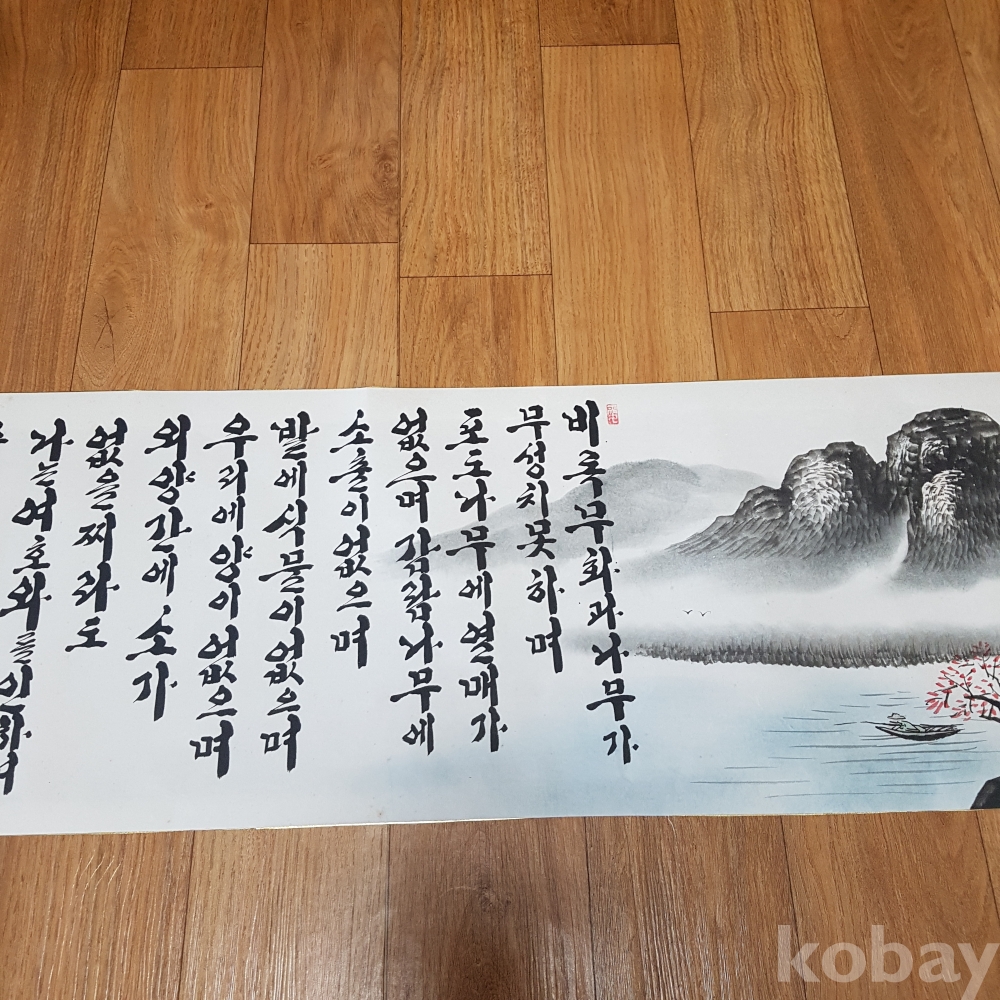 비록무화과나무가
무성치못하며
포도나무에열매가
없으며감람나무에
소출이없으며
밭에식물이없으며
우리에양이없으며
외양간에소가
없을찌라도
나는여호와를인하여
kobay